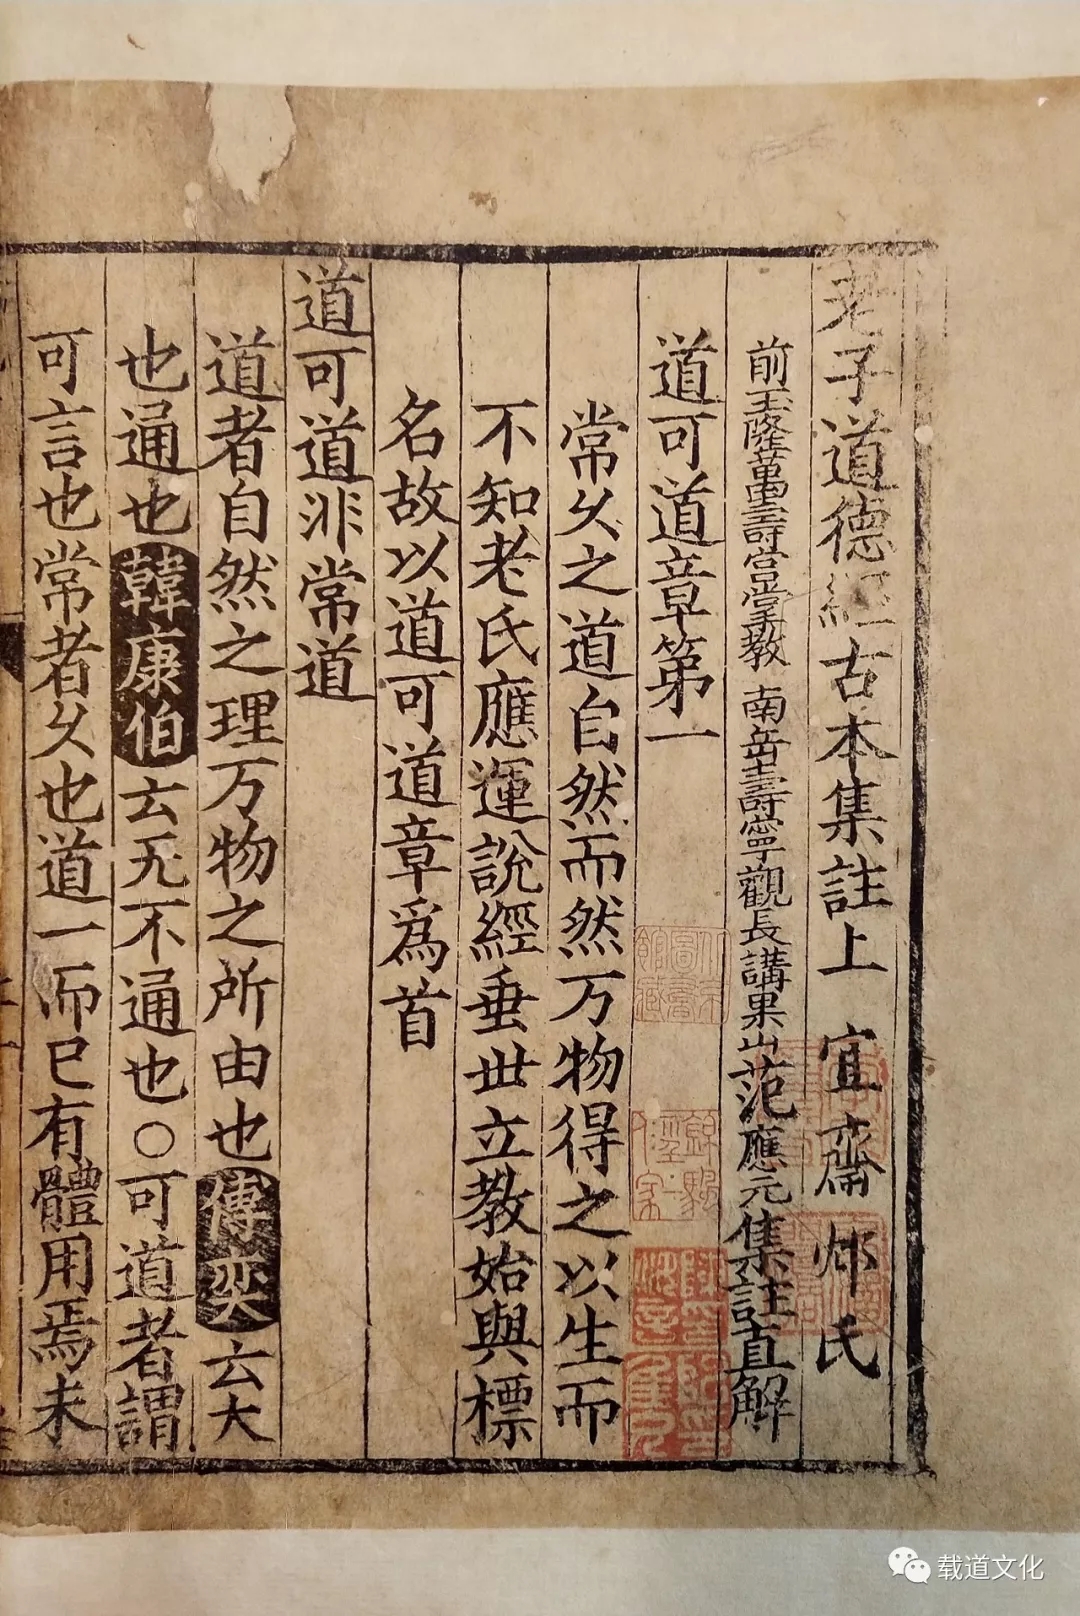 老子道德經古本集註上 宜齋 邠氏
前玉隆萬壽宮掌教 南岳壽寧觀長講果山范應元集註直解
道可道章第一
常久之道自然而然万物得之以生而
不知老氏應運說經垂世立教始與標
名故以道可道章爲首
道可道非常道
道者自然之理万物之所由也傅奕云大
也通也韓康伯云无不通也○可道者謂
可言也常者久也道一而已有體用焉未
载道文化